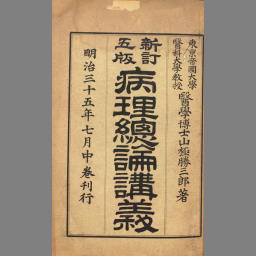 東京帝國大學
醫科大學教授
醫學博士山極勝三郎著
新訂
五版
病理總論講義
明治三十五年七月中卷刊行